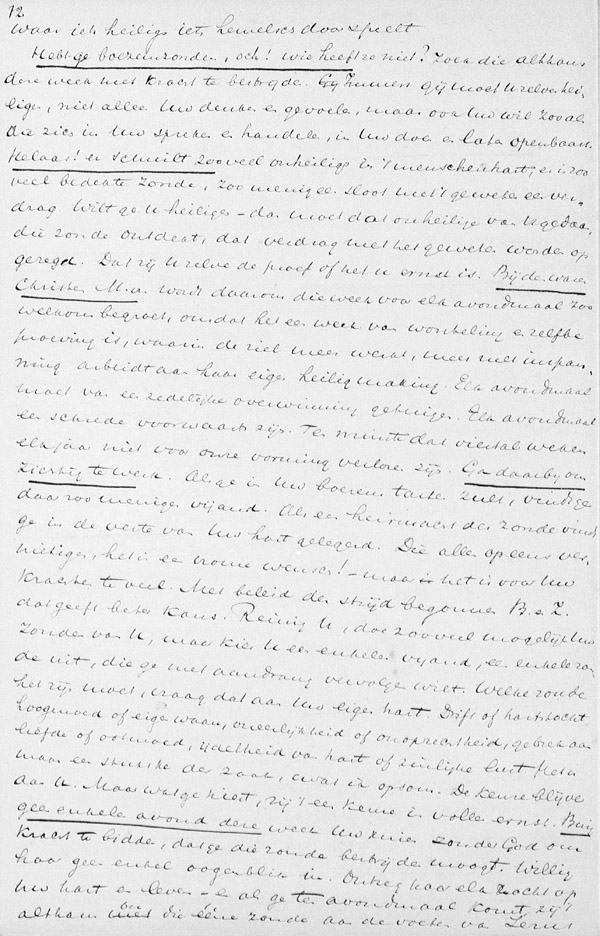 12
Waar iets heiligs iets hemelsch door speelt
Hebt ge boezemzonden, och! wie heeft ze niet? Zoek die althans
deze week met kracht te bestrijde. Gij immers gij moet Uzelve hei-
lige, niet allee Uw denke e gevoele, maar ook Uw wil zooals
die zich in Uw spreke e handele, in Uw doe e late openbaart.
Helaas! er schuilt zooveel onheiligs in 't menschenhart, er is zoo
veel bedekte zonde, zoo menigee sloot met 't gewete ee ver-
drag. Wilt ge U heilige - da moet dat onheilige va U gedaa,
die zonde ontdekt, dat verdrag met het gewete worde op
gezegd. Dat zij U zelve de proef of het U ernst is. Bij de ware
Christe M.a. wordt daarom die week voor elk avondmaal zoo
welkom begroet, omdat het ee week va worsteling e zelfbe
proeving is, waarin de ziel meer werkt, meer met inspan-
ning arbeidt aa haar eige heiligmaking. Elk avondmaal
moet va ee zedelijke overwinning getuige. Elk avondmaal
ee schrede voorwaarts zijn. Te minste dat viertal weke
elk jaar niet voor onze vorming verlore zijn. Ga daarbij om
zichtig te werk. Als ge in Uw boezem taste zult, vindt ge
daar zoo menige vijand. Als ee heirmacht der zonde vindt
ge in de veste va Uw hart gelegerd. Die alle opeens ver-
nietige, het is ee vrome wensch! - maar het is voor Uw
krachte te veel. Met beleid de strijd begonne B. e Z.
dat geeft beter kans. Reinig U, door zooveel mogelijk Uw
zonde va U, maar kies U ee enkele vijand, ee enkele zon
de uit, die ge met aandrang vervolge wilt. Welke zonde
het zijn moet, vraag dat aa Uw eige hart. Drift of hartstocht
hoogmoed of eigewaan, oneerlijkheid of onoprechtheid, gebrek aa
liefde of ootmoed, ijdelheid va hart of zinlijke lust
maar ee de zaak, wat ik opsom. De keuze blijve
aa U. Maar wat ge kiest, zij 't ee keuze in volle ernst. Buig
gee enkele avond deze week Uw knieë zonder God om
kracht te bidde, dat ge die zonde bestrijde moogt. Willig
haar gee enkel oogenblik in. Ontzeg haar elk recht op
Uw hart e leve - e al ge te avondmaal komt, zij 't
althans die ééne zonde aa de voete va Jezus